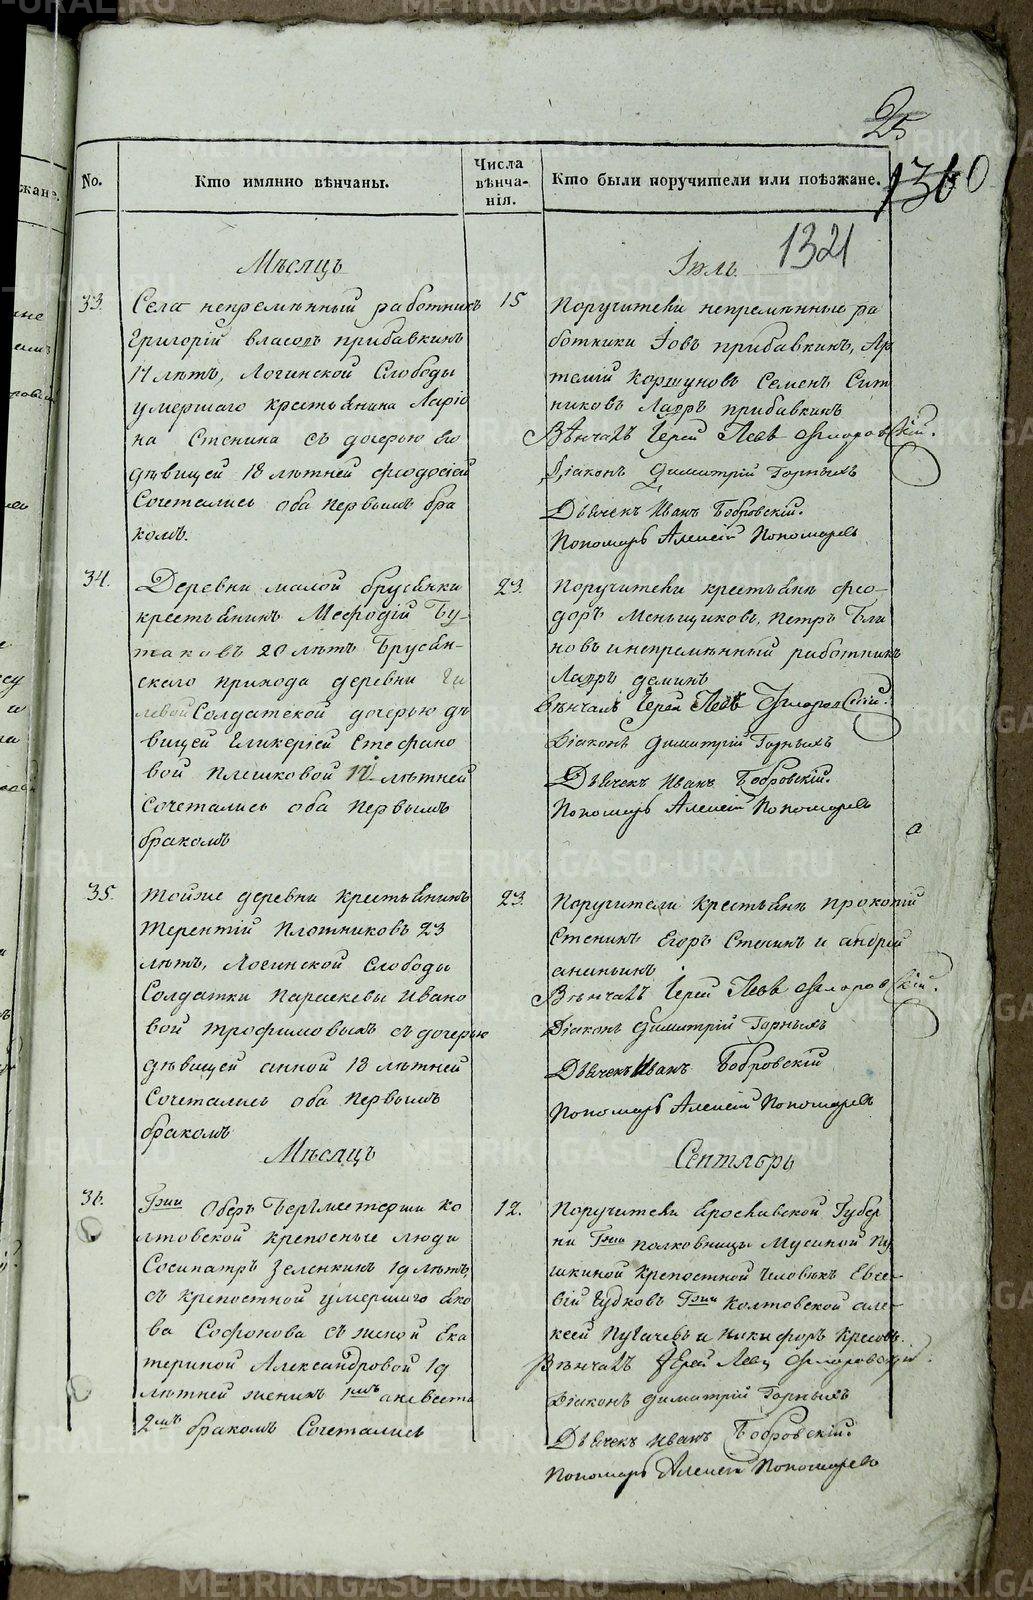 25
1360
1321
No.
Кто имянно вѣнчаны.
Числа вѣнча-нія.
Кто были поручители или поѣзжане.
Мѣсяцъ
Іюль
33.
Села непремѣнный работникъ
Григорій власовъ прибавкинъ
17 лѣтъ, Логинской Слободы
умершаго крестьянина Ларіо
на Стенина съ дочерью во
дѣвицей 18 лѣтней феодосіей
Сочетались оба первымъ бра
комъ.
15
Поручители непремѣнные ра
ботники Іовъ прибавкинъ, Ар
темій Коршуновъ Семенъ Сит
никовъ Лавръ прибавкинъ
Вѣнчалъ Іерей Левъ Флоровскій.
Діаконъ Димитрій Горныхъ
Дьячекъ Иванъ Бобровскій.
Пономарь Алексѣй Пономаревъ
34.
Деревни малой брусянки
крестьянинъ Меѳодій Бу-
таковъ 20 лѣтъ Брусян-
скаго прихода деревни Га
левой Солдатской дочерью дѣ
вицей Гликеріей Стефано
вой Плешковой 17 лѣтней
сочетались оба первымъ
бракомъ
23.
Поручители крестьяна фео-
доръ Меньщиковъ, петръ Бли
новъ и непремѣнный работникъ
Лавръ деминъ
Вѣнчалъ Іерей Левъ Флоровскій.
Діаконъ Димитрій Горныхъ
Дьячекъ Иванъ Бобровскій.
Пономарь Алексѣй Пономаревъ
35.
Тойже деревни крестьянинъ
Терентій Плотниковъ 23
лѣтъ, Логинской Слободы
Солдатки Параскевы Ивано
вой Трофимовыхъ съ дочерью
дѣвицей анной 18 лѣтней
Сочетались оба первымъ
бракомъ
23.
Поручители крестьяна прокопій
Стенинъ Егоръ Стенинъ и андрей
ананьинъ
Вѣнчалъ Іерей Левъ Флоровскій.
Діаконъ Димитрій Горныхъ
Дьячекъ Иванъ Бобровскій
Пономарь Алексѣй Пономаревъ
Мѣсяцъ
Сентябрь
36.
Гжи Оберъ Бергмейстерши ко
лтовской крепосные люди
Сосипатръ Зеленкинъ 19 лѣтъ,
съ крепостной умершаго яко
ва Софонова съ женой Ека
териной Александровой 19
лѣтней женихъ 1мъ аневеста
2мъ бракомъ Сочетались
12.
Поручители Ярославской Губер
ни Гжи полковницы Мусиной Пу
шкиной крепостной человѣкъ Евсе-
вій Гудковъ Гжи Колтовской але-
ксей Пугачевъ и никифоръ Кресовъ.
Вѣнчалъ Іерей Левъ Флоровскій.
Діаконъ Димитрій Горныхъ
Дьячекъ Иванъ Бобровскій.
Пономарь Алексѣй Пономаревъ
METRIKI.GASO-URAL.RU